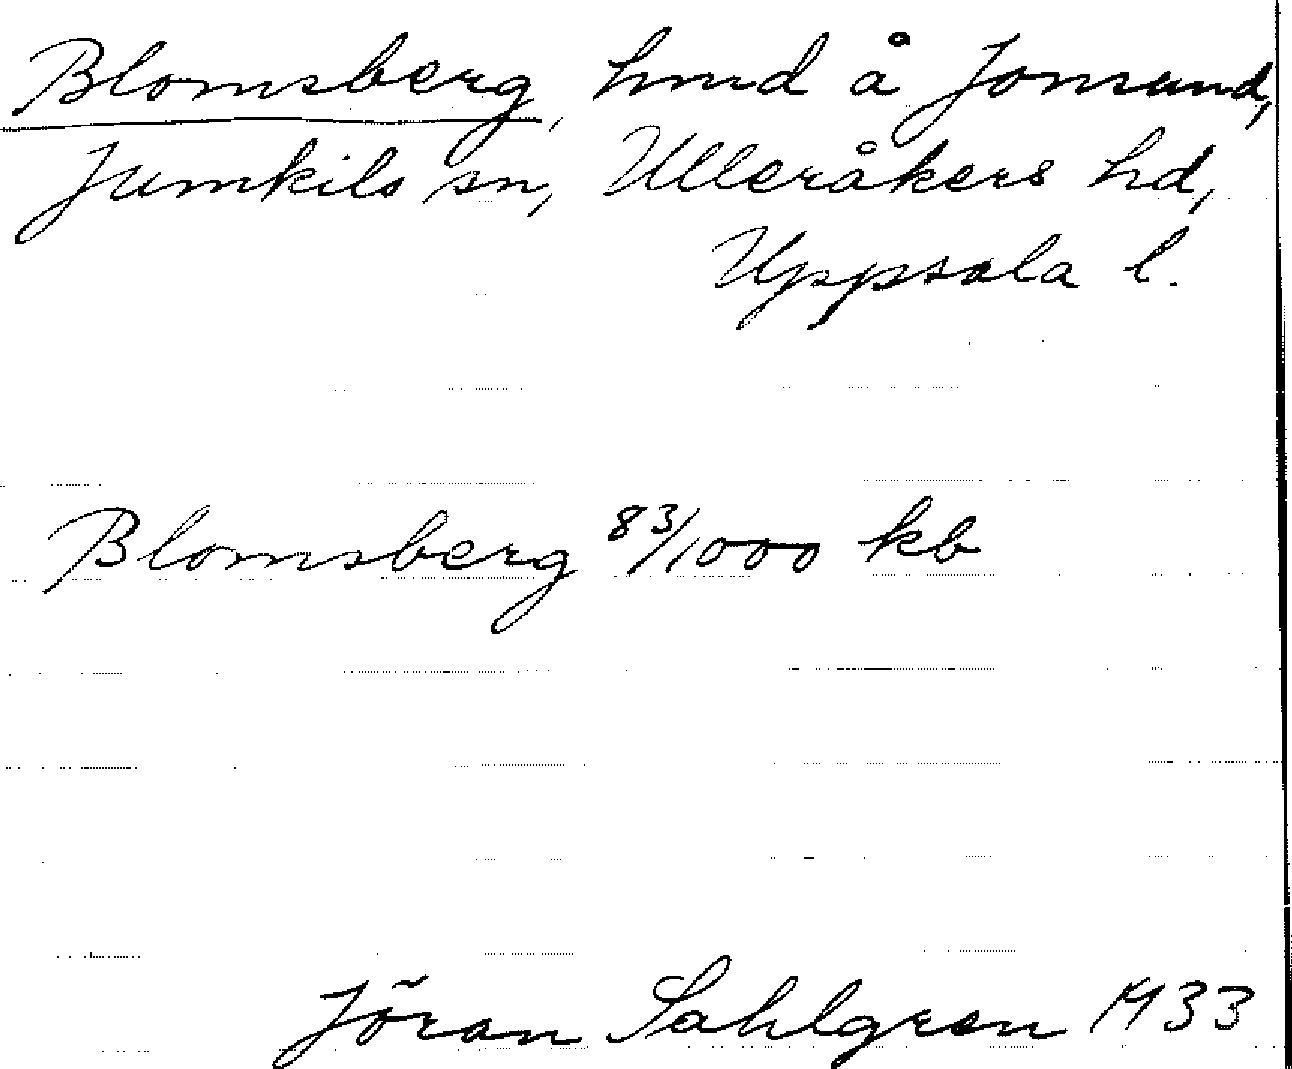 Blomsberg, hmd å Jonsund,
Jumkils sn, Ulleråkers hd,
Uppsala l.
Blomsberg 83/1000 kb
Jöran Sahlgren 1933